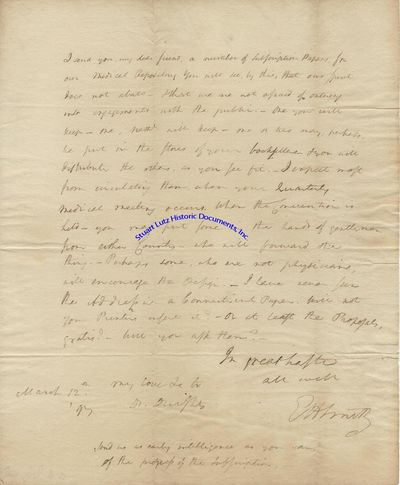 I send you, my dear friend, a number of Subscription Papers, for
our Medical Repository. You will see, by this, that our spirit
does not abate – that we are not afraid of entering
into engagements with the public. – One you will
keep – one, will keep – one or two may, perhaps,
be put in the stores of your booksellers & you will
distribute the others, as you see fit. – I expect most
from circulating them, when your Quarterly
Medical meeting occurs. When the Convention is
held – you may put some in the hands of gentlemen
from other Counties – who will forward the
thing. – Perhaps some, who are not physicians,
will encourage the design. – I have seen
the Address in a Connecticut Paper. Will not
your Printers insert it? – Or at least the Proposals,
gratis? – Will you ask them? –
In great haste
all well
E H Smith
March 12.
'97
my love to
Dr. Dwight
Send us as early intelligence as you can,
of the progress of the subscription.
Stuart Lutz Historic Documents, Inc.